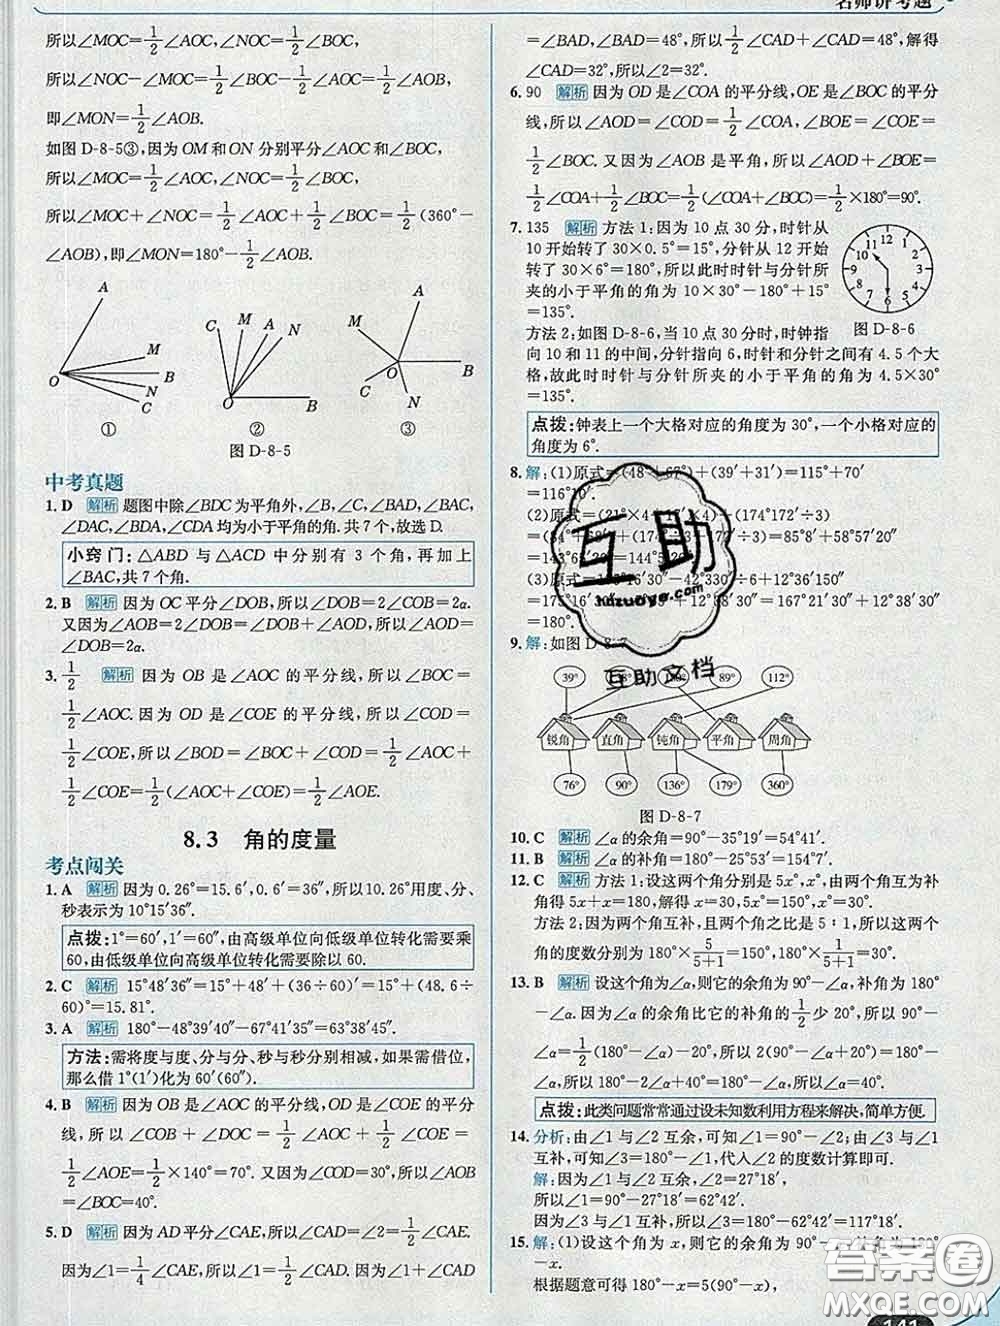 名师讲考题
所以∠MOC=1/2∠AOC,∠NOC=1/2∠BOC,
所以∠NOC-∠MOC=1/2∠BOC-1/2∠AOC=1/2∠AOB,
即∠MON=1/2∠AOB.
如图D-8-5③,因为OM和ON分别平分∠AOC和∠BOC,
所以∠MOC=1/2∠AOC,∠NOC=1/2∠BOC,
所以∠MOC+∠NOC=1/2∠AOC+1/2∠BOC=1/2(360°-
∠AOB),即∠MON=180°-1/2∠AOB.
A
M
O
B
N
C
①
C
M
A
N
O
B
②
M
A
O
B
C
N
③
图D-8-5
中考真题
1.D 解析 题图中除∠BDC为平角外,∠B,∠C,∠BAD,∠BAC,
∠DAC,∠BDA,∠CDA均为小于平角的角.共7个,故选D.
小窍门:△ABD与△ACD中分别有3个角,再加上
∠BAC,共7个角.
2.B 解析 因为OC平分∠DOB,所以∠DOB=2∠COB=2α.
又因为∠AOB=2∠DOB=∠DOB+∠AOD,所以∠AOD=
∠DOB=2α.
3.1/2 解析 因为OB是∠AOC的平分线,所以∠BOC=
1/2∠AOC.因为OD是∠COE的平分线,所以∠COD=
1/2∠COE,所以∠BOD=∠BOC+∠COD=1/2∠AOC+
1/2∠COE=1/2(∠AOC+∠COE)=1/2∠AOE.
8.3 角的度量
考点闯关
1.A 解析 因为0.26°=15.6′,0.6′=36″,所以10.26°用度、分、
秒表示为10°15′36″.
点拨:1°=60′,1′=60″,由高级单位向低级单位转化需要乘
60,由低级单位向高级单位转化需要除以60.
2.C 解析 15°48′36″=15°+48′+(36÷60)′=15°+(48.6÷
60)°=15.81°.
3.A 解析 180°-48°39′40″-67°41′35″=63°38′45″.
方法:需将度与度、分与分、秒与秒分别相减,如果需借位,
那么借1°(1′)化为60′(60″).
4.B 解析 因为OB是∠AOC的平分线,OD是∠COE的平分
线,所以∠COB+∠DOC=1/2∠AOC+1/2∠COE=
1/2∠AOE=1/2×140°=70°.又因为∠COD=30°,所以
∠BOC=40°.
5.D 解析 因为AD平分∠CAE,所以∠CAD=∠2=1/2∠CAE.
因为∠1=1/4∠CAE,所以∠1=1/2∠CAD.因为∠1+∠CAD
=∠BAD,∠BAD=48°,所以1/2∠CAD+∠CAD=48°,解得
∠CAD=32°,所以∠2=32°.
6.90 解析 因为OD是∠COA的平分线,OE是∠BOC的平分
线,所以∠AOD=∠COD=1/2∠COA,∠BOE=∠COE=
1/2∠BOC.又因为∠AOB是平角,所以∠AOD+∠BOE=
1/2∠COA+1/2∠BOC=1/2(∠BOC+∠COA)=1/2×180°=90°.
7.135 解析 方法1:因为10点30分,时针从
10开始转了30×0.5°=15°,分针从12开始
转了30×6°=180°,所以此时时针与分针所
夹的小于平角的角为10×30°-180°+15°
=135°.
方法2:如图D-8-6,当10点30分时,时钟指
向10和11的中间,分针指向6,时针和分针之间有4.5个大
格,故此时时针与分针所夹的小于平角的角为4.5×30°
=135°.
12 1 2 3 4 5 6 7 8 9 10 11
图D-8-6
点拨:钟表上一个大格对应的角度为30°,一个小格对应的
角度为6°.
8.解:(1)原式=(48°+67°)+(39′+31′)=115°+70′
=116°10′.
(2)原式=(21°×4+17′×4)+(174°172′÷3)
=(84°+68′)+(58°+ =85°8′+58°57′20″
=143°65′20″=144°5′20″.
(3)原式= 16′30″-42°330′÷6+12°36′150″
=175°16′30″- +12°36′150″=167°21′30″+12°38′30″
=180°.
9.解:如图D-8-
39° 89° 112°
锐角 直角 钝角 平角 周角
76° 90° 136° 179° 360°
图D-8-7
10.C 解析 ∠α的余角=90°-35°19′=54°41′.
11.B 解析 ∠α的补角=180°-25°53′=154°7′.
12.C 解析 方法1:设这两个角分别是5x°,x°,由两个角互为补
角得5x+x=180,解得x=30,所以x°=30°.
方法2:因为两个角互补,且两个角之比是5:1,所以这两个角
的度数分别为180°×5/(5+1)=150°,180°×1/(5+1)=30°.
13.B 解析 设这个角为∠α,则它的余角为90°-∠α,补角为180°
-∠α.因为这个角的余角比它的补角的1/2少20°,所以90°-
∠α=1/2(180°-∠α)-20°,所以2(90°-∠α)=180°-∠α-
40°,所以180°-2∠α+40°=180°-∠α,所以∠α=40°.
点拨:此类问题常常通过设未知数利用方程来解决,简单方便.
14.分析:由∠1与∠2互余,可知∠1=90°-∠2;由∠3与∠1
互补,可知∠3=180°-∠1,代入∠2的度数计算即可.
解:因为∠1与∠2互余,∠2=27°18′,
所以∠1=90°-27°18′=62°42′.
因为∠3与∠1互补,所以∠3=180°-62°42′=117°18′.
15.解:(1)设这个角为x,则它的余角为90°-x,补角为180°
-x.
根据题意可得180°-x=5(90°-x),
141
互助
hdzuoye.com
互助文档
答案圈
MXQE.COM